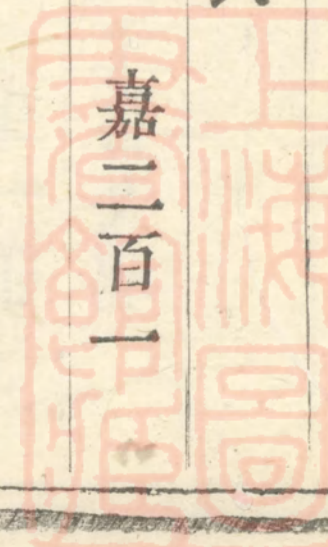 嘉二百一
上海圖
書館